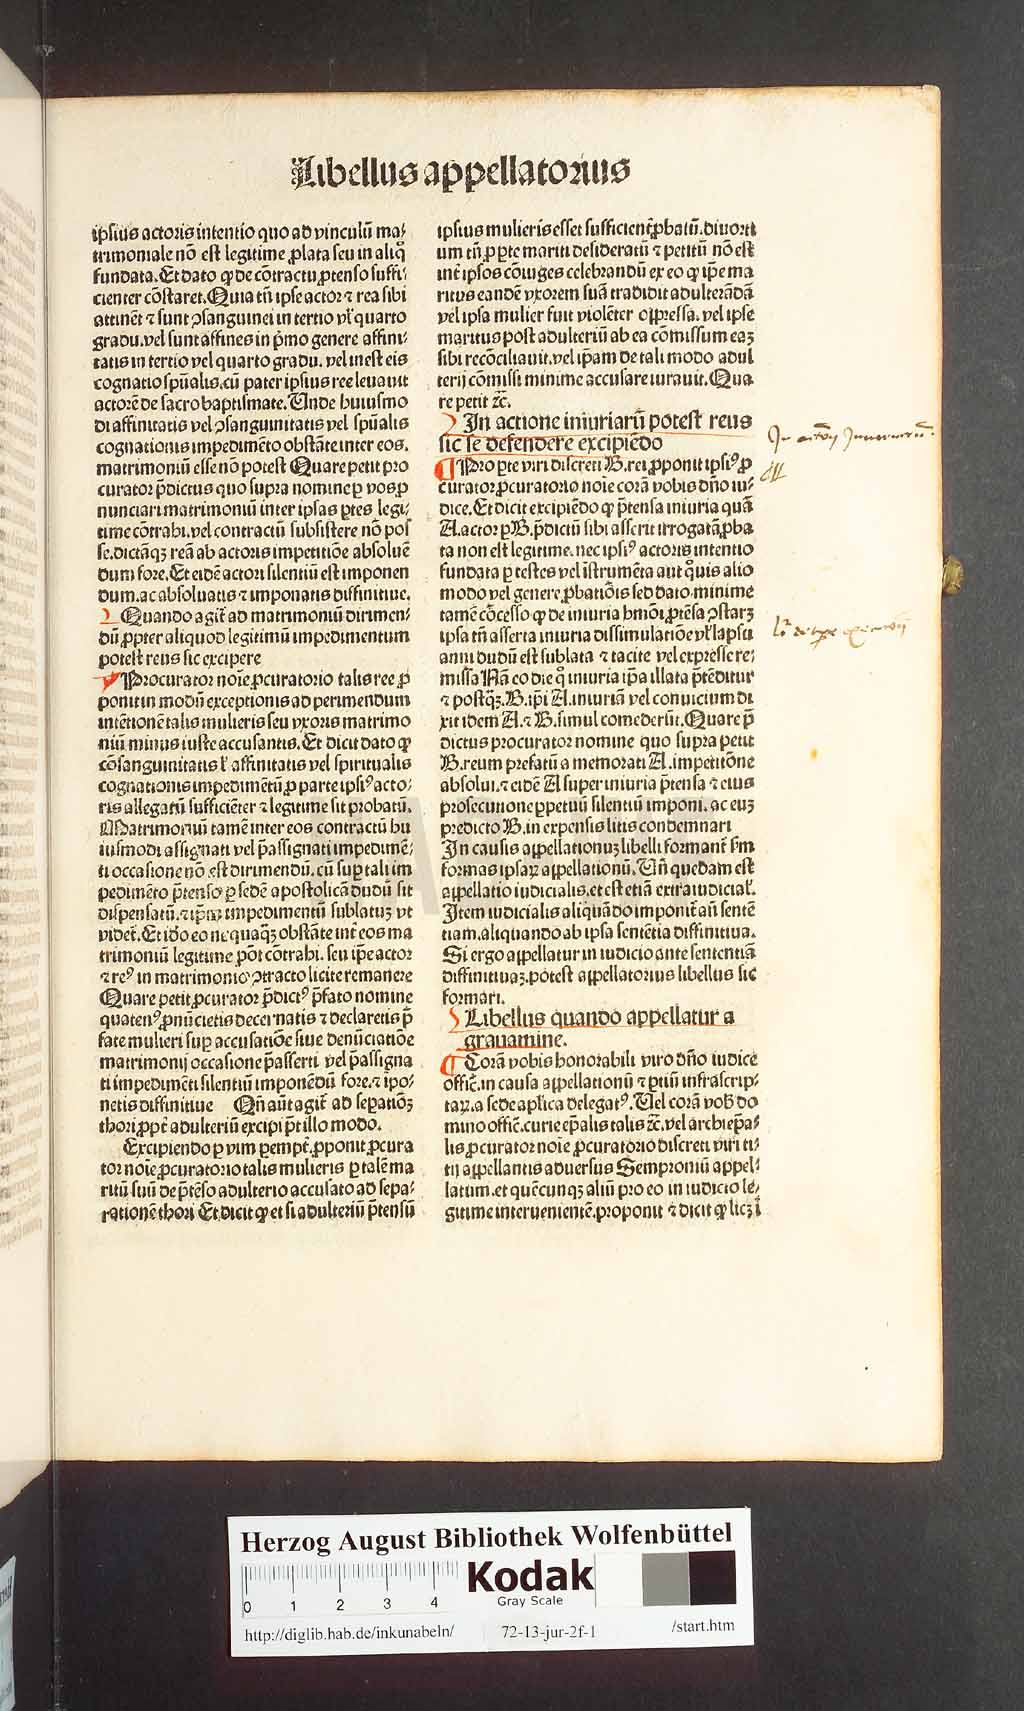 Libellus appellatorius
ipsius actoris intentio quo ad vinculū ma⸗
trimoniale nō est legitime ꝓlata seu in aliq̊
fundata. Et dato ꝙ de cōtractu ꝓtenso suffi⸗
cienter cōstaret. Quia tn̄ ipse actor ⁊ rea sibi
attinēt ⁊ sunt ↄsanguinei in tertio vl̓ quarto
gradu. vel sunt affines in p̄mo genere affini⸗
tatis in tertio vel quarto gradu. vel inest eis
cognatio spūalis. cū pater ipsius ree leuauit
actorē de sacro baptismate. Unde huiusmo
di affinitatis vel ↄsanguinitatis vel spūalis
cognationis impedimēto obstāte inter eos.
matrimoniū esse nō potest Quare petit pro
curator p̄dictus quo supra nomine ꝑ vos ꝓ
nunciari matrimoniū inter ipsas ꝑtes legi⸗
time cōtrahi. vel contractū subsistere nō pos
se. dictāqꝫ reā ab actoris impetitiōe absoluē
dum fore. Et eidē actori silentiū est imponen
dum. ac absoluatis ⁊ imponatis diffinitiue.
Quando agit̄ ad matrimoniū dirimen⸗
dū ꝓpter aliquod legitimū impedimentum
potest reus sic excipere
Procurator noīe ꝓcuratorio talis ree ꝓ
ponit in modū exceptionis ad perimendum
intētionē talis mulieris seu vxoris matrimo
niū minus iuste accusantis. Et dicit dato ꝙ
cōsanguinitatis l̓ affinitatis vel spiritualis
cognationis impedimētū ꝓ parte ipsiꝰ acto⸗
ris allegatū sufficiēter ⁊ legitime sit probatū.
Matrimoniū tamē inter eos contractū hu
iusmodi assignati vel p̄assignati impedimē⸗
ti occasione nō est dirimendū. cū suꝑ tali im
pedimēto p̄tenso ꝑ sedē apostolicā dudū sit
dispensatū. ⁊ ip̄m impedimentū sublatuꝫ vt
videt̄. Et ido eo nequaquaꝫ obstāte int̄ eos ma
trimoniū legitime pōt cōtrahi. seu ip̄e actor
⁊ reꝰ in matrimonio ↄtracto licite remanere
Quare petit ꝓcurator p̄dictꝰ p̄fato nomine
quatenꝰ ꝓnūcietis decernatis ⁊ declaretis p̄
fate mulieri suꝑ accusatiōe siue denūciatiōe
matrimonij occasione p̄asserti vel p̄assigna
ti impedimēti silentiū imponēdū fore. ⁊ ipo⸗
netis diffinitiue Qn̄ aūt agit̄ ad sepatiōꝫ
thori ꝓpt̄ adulteriū excipi p̄t illo modo.
Excipiendo ꝑ vim ꝑempt̄. ꝓponit ꝓcura
tor noīe ꝓcuratorio talis mulieris ꝑ talē ma
ritū suū de p̄tēso adulterio accusato ad sepa⸗
rationē thori Et dicit ꝙ et si adulteriū p̄tensū
ipsius mulieris esset sufficient̄ ꝓbatū. diuorti
um tn̄ ꝓ ꝑte mariti desideratū ⁊ petitū nō est
int̄ ipsos cōiuges celebrandū ex eo ꝙ ip̄e ma
ritus eandē vxorem suā tradidit adulterādā
vel ipsa mulier fuit violēter oppressa. vel ipse
maritus post adulteriū ab ea cōmissum eaꝫ
sibi recōciliauit. vel ip̄am de tali modo adul
terij cōmissi minime accusare iurauit. Qua
re petit ⁊c̄.
In actione iniuriarū potest reus
sic se defendere excipiēdo
Pro ꝑte viri discreti B. rei ꝓponit ipsiꝰ ꝓ
curator ꝓcuratorio noīe corā vobis dn̄o iu⸗
dice. Et dicit excipiēdo ꝙ p̄tensa iniuria quā
A. actor ꝑ B. p̄dictū sibi asserit irrogatā ꝓba
ta non est legitime. nec ipsiꝰ actoris intentio
fundata ꝑ testes vel īstrumēta aut q̊uis alio
modo vel genere ꝓbatiōis sed dato. minime
tamē cōcesso ꝙ de iniuria hmōi ꝓtēsa ↄstarꝫ
ipsa tn̄ asserta iniuria dissimulatiōe vl̓ lapsu
anni dudū est sublata ⁊ tacite vel expresse re⸗
missa Nā eo die q̊ iniuria ip̄a illata p̄tēditur
⁊ postqꝫ. B. ip̄i A. iniuriā vel conuicium di
xit idem A. ⁊ B. simul comederūt. Quare p̄
dictus procurator nomine quo supra petit
B. reum prefatū a memorati A. impetitōne
absolui. ⁊ eidē A super iniuria p̄tensa ⁊ eius
prosecutione ꝑpetuū silentiū imponi. ac euꝫ
predicto B. in expensis litis condemnari
In causis appellationuꝫ libelli formant̄ s̄m
formas ipsaꝝ appellationū. Un̄ quedam est
appellatio iudicialis. et est etiā extraiudicial̓.
Item iudicialis aliquādo imponit̄ an̄ sentē
tiam. aliquando ab ipsa sentētia diffinitiua.
Si ergo appellatur in iudicio ante sententiā
diffinitiuaꝫ. potest appellatorius libellus sic
formari.
Libellus quando appellatur a
grauamine.
Corā vobis honorabili viro dn̄o iudice
offic̄. in causa appellationū ⁊ ꝑtiū infrascrip⸗
taꝝ. a sede aplica delegatꝰ. Vel corā vob̄ do
mino offic̄. curie ep̄alis talis ⁊c̄. vel archiep̄a⸗
lis ꝓcurator noīe ꝓcuratorio discreti viri ti⸗
tij appellantis aduersus Semproniū appel⸗
latum. et quēcunqꝫ aliū pro eo in iudicio le⸗
gitime interuenientē. proponit ⁊ dicit ꝙ licꝫ ī
Herzog August Bibliothek Wolfenbüttel
0 1 2 3 4
Kodak
Gray Scale
http://diglib.hab.de/inkunabeln/ 72-13-jur-2f-1 /start.htm